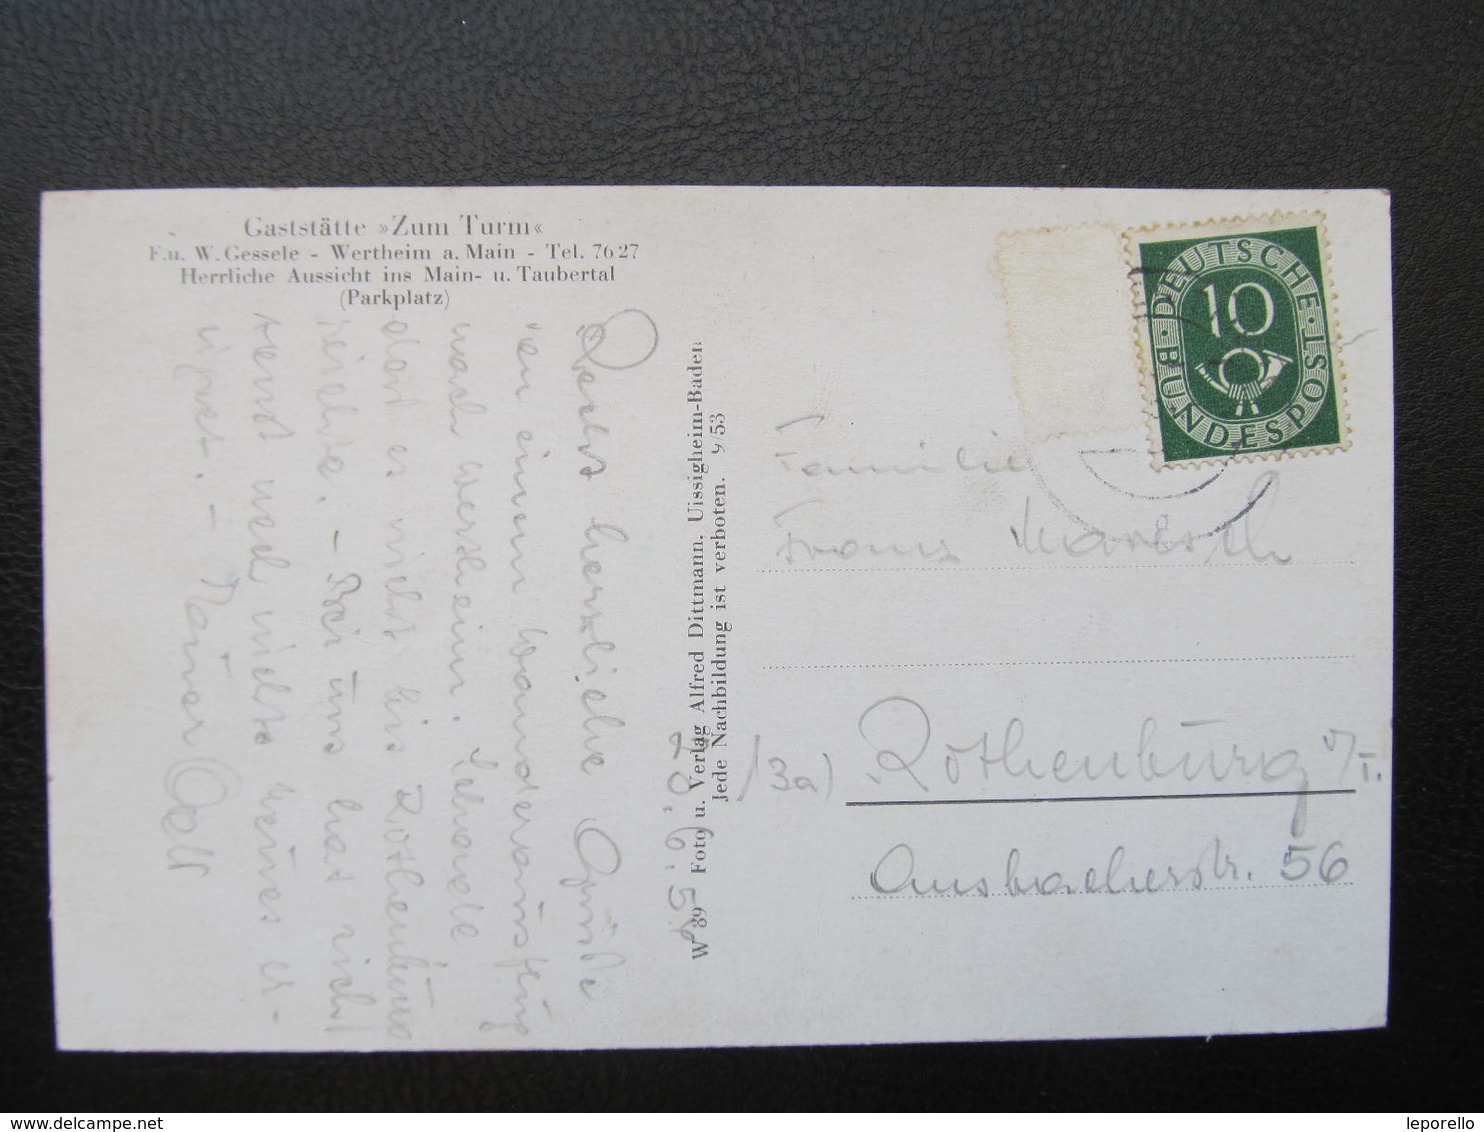 Gaststätte »Zum Turm«
F. u. W. Gessele - Wertheim a. Main - Tel. 7627
Herrliche Aussicht ins Main- u. Taubertal
(Parkplatz)
Recht herzliche Grüße
von einem Wanderausflug
nach Wertheim. Schade
daß es nicht bis Rothenburg
reichte. - Bei uns hat sich
sonst noch nichts neues er-
eignet. -
W 39 Foto u. Verlag Alfred Dittmann, Uissigheim-Baden
Jede Nachbildung ist verboten. 9/53
DEUTSCHE BUNDESPOST
10
Familie
Franz
13a) Rothenburg o/T.
Ansbacherstr. 56
www.delcampe.net
leporello